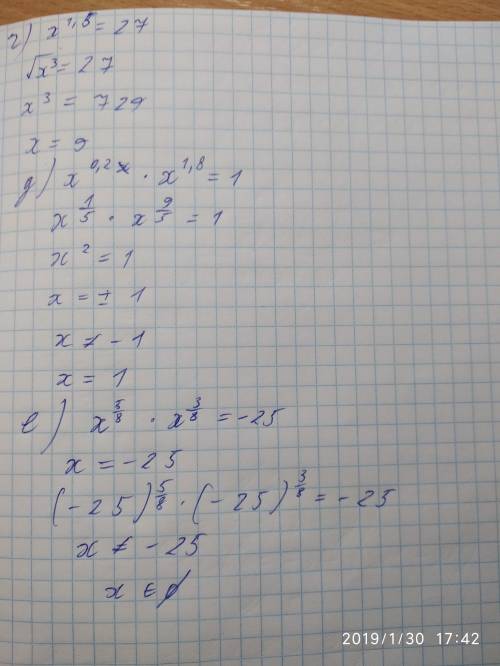 г) x^1,5 = 27
√x³ = 27
x³ = 729
x = 9
д) x^0,2 · x^1,8 = 1
x^1/5 · x^9/5 = 1
x² = 1
x = ± 1
x ≠ - 1
x = 1
е) x^5/8 · x^3/8 = -25
x = -25
(-25)^5/8 · (-25)^3/8 = -25
x ≠ -25
x ∈ ∅
2019/1/30 17:42